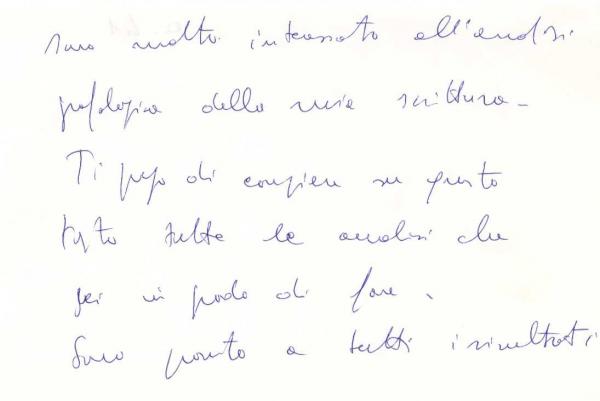 sono molto interessato all'analisi
grafologica della mia scrittura.
Ti prego di compiere su questo
testo tutte le analisi che
sei in grado di fare.
Sono pronto a tutti i risultati